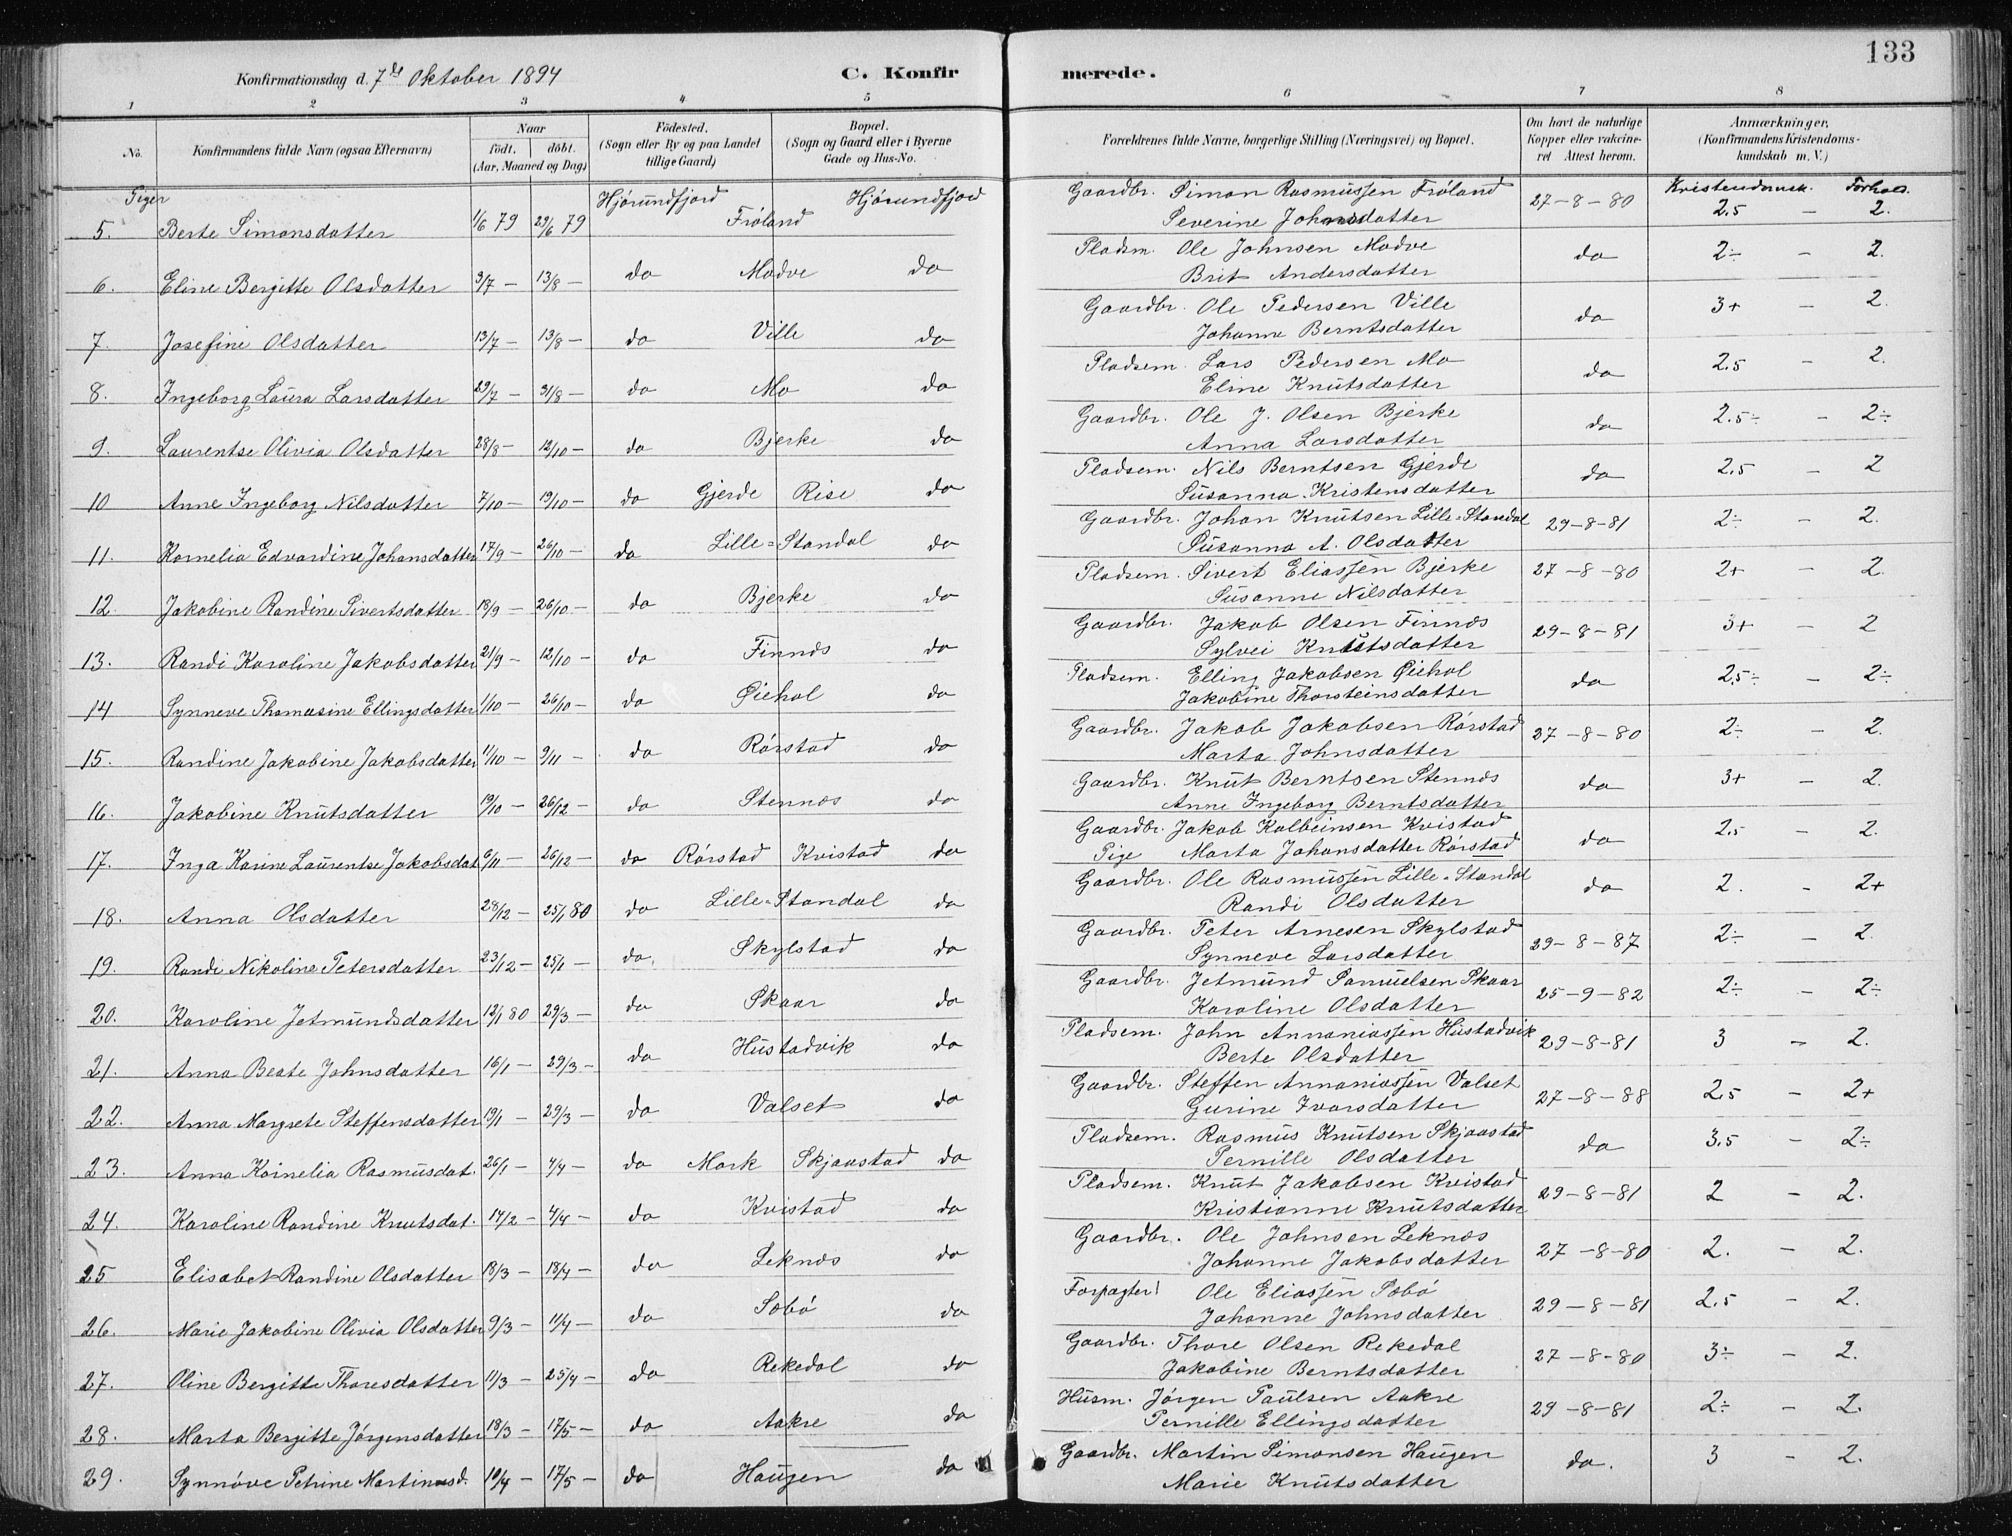 133
Konfirmationsdag d. 7de Oktober 1894 C. Konfirmerede.
1 2 3 4 5 6 7 8
No. Konfirmandens fulde Navn (ogsaa Efternavn) Naar födt. döbt. (Aar, Maaned og Dag) Födested. (Sogn eller By og paa Landet tillige Gaard) Bopæl. (Sogn og Gaard eller i Byerne Gade og Hus-No. Forældrenes fulde Navne, borgerlige Stilling (Næringsvei) og Bopæl. Om havt de naturlige Kopper eller vakcineret Attest herom. Anmærkninger, (Konfirmandens Kristendomskundskab m. V.)
Piger Hjørundfjord Hjørundfjord Kristendomsk. Forhold.
5. Berte Simonsdatter 1/6 79 29/6 79 Frøland Gaardbr. Simon Rasmussen Frøland 27-8-80 2.5 - 2.
Severine Johnsdatter
6. Eline Bergitte Olsdatter 3/7 - 13/8 - do Modve do Pladsm. Ole Johnsen Modve do 2÷ - 2.
Brit Andersdatter
7. Josefine Olsdatter 13/7 - 13/8 - do Ville do Gaardbr. Ole Pedersen Ville do 3+ - 2.
Johanne Berntsdatter
8. Ingeborg Laura Larsdatter 29/7 - 31/8 - do Mo do Pladsem. Lars Pedersen Mo do 2.5 - 2.
Eline Knutsdatter
9. Laurentse Olivia Olsdatter 28/8 - 12/10 - do Bjerke do Gaardbr. Ole J. Olsen Bjerke do 2.5÷ - 2÷
Anna Larsdatter
10 Anne Ingeborg Nilsdatter 7/10 - 19/10 - do Gjerde Rise do Pladsem. Nils Berntsen Gjerde do 2.5 - 2
Susanna Kristensdatter
11. Kornelia Edvardine Johansdatter 17/9 - 26/10 - do Lille=Standal do Gaardbr. Johan Knutsen Lille=Standal 29-8-81 2÷ - 2.
Susanna A. Olsdatter
12. Jakobine Randine Sivertsdatter 18/9 - 26/10 - do Bjerke do Pladsem. Sivert Eliassen Bjerke 27-8-80 2+ - 2.
Susanne Nilsdatter
13. Randi Karoline Jakobsdatter 21/9 - 12/10 - do Finnes do Gaardbr. Jakob Olsen Finnes 29-8-81 3+ - 2
Sylvei Knutsdatter
14 Synneve Thomasine Ellingsdatter 1/10 - 26/10 - do Øiehol do Pladsem. Elling Jakobsen Øiehol do 2.5÷ - 2÷
Jakobine Thorsteinsdatter
15. Randine Jakobine Jakobsdatter 11/10 - 9/11 - do Rørstad do Gaardbr. Jakob Jakobsen Rørstad 27-8-80 2÷ - 2.
Marta Johnsdatter
16. Jakobine Knutsdatter 19/10 - 26/12 - do Stennes do Gaardbr. Knut Berntsen Stennes do 3+ - 2.
Anne Ingeborg Berntsdatter
17. Inga Karine Laurentse Jakobsdat. 6/11 - 26/12 - do Rørstad Kvistad do Gaardbr. Jakob Kolbeinsen Kvistad do 2.5 - 2.
Pige Marta Johansdatter Rørstad
18. Anna Olsdatter 28/12 - 25/1 80 do Lille=Standal do Gaardbr. Ole Rasmussen Lille=Standal do 2. - 2+
Randi Olsdatter
19. Randi Nikoline Petersdatter 23/12 - 25/1 - do. Skylstad do Gaardbr. Peter Arnesen Skylstad 29-8-87 2÷ - 2.
Synneve Larsdatter
20. Karoline Jetmundsdatter 12/1 80 29/3 - do Skaar do Gaardbr. Jetmund Samuelsen Skaar 25-9-82 2÷ - 2÷
Karoline Olsdatter
21. Anna Beate Johnsdatter 16/1 - 29/3 - do Hustadvik do Pladsem. John Annaniassen Hustadvik 29-8-81 3 - 2.
Berte Olsdatter
22. Anna Margrete Steffensdatter 19/1 - 29/3 - do Valset do Gaardbr. Steffen Annaniassen Valset 27-8-88 2.5 - 2+
Gurine Ivarsdatter
23. Anna Kornelia Rasmusdat. 26/1 - 4/4 - do Mork Skjaastad do Pladsem. Rasmus Knutsen Skjaastad do 3.5 - 2÷
Pernille Olsdatter
24. Karoline Randine Knutsdat. 14/2 - 4/4 - do Kvistad do Pladsem. Knut Jakobsen Kvistad 29-8-81 2 - 2.
Kristianne Knutsdatter
25 Elisabet Randine Olsdatter 18/3 - 18/4 - do Leknes do Gaardbr. Ole Johnsen Leknes 27-8-80 2. - 2.
Johanne Jakobsdatter
26. Marie Jakobine Olivia Olsdatter 9/3 - 11/4 - do Sæbø do Forpagter Ole Eliassen Sæbø 29-8-81 2.5 - 2.
Johanne Johnsdatter
27. Oline Bergitte Thoresdatter 11/3 - 25/4 - do Rekedal do Gaardbr. Thore Olsen Rekedal 27-8-80 3÷ - 2.
Jakobine Berntsdatter
28. Marta Bergitte Jørgensdatter 18/3 - 17/5 - do Aakre do Husm. Jørgen Paulsen Aakre 29-8-81 2÷ - 2.
Pernille Ellingsdatter
29. Synnøve Petrine Martinusd. 10/4 - 17/5 - do Haugen do Gaardbr. Martin Simonsen Haugen do. 3 - 2.
Marie Knutsdatter